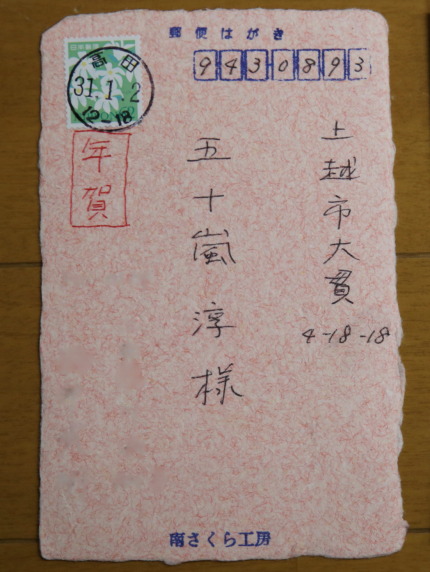 郵便はがき
9430893
高田
31.1.2
12-18
年賀
上越市大貫
4-18-18
五十嵐淳様
南さくら工房